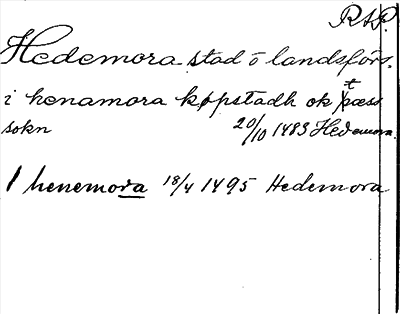 RAP.
Hedemora stad o landsförs.
i henamora køpstadh ok tpæss
sokn 20/10 1483 Hedemora.
I henemora 18/4 1495 Hedemora